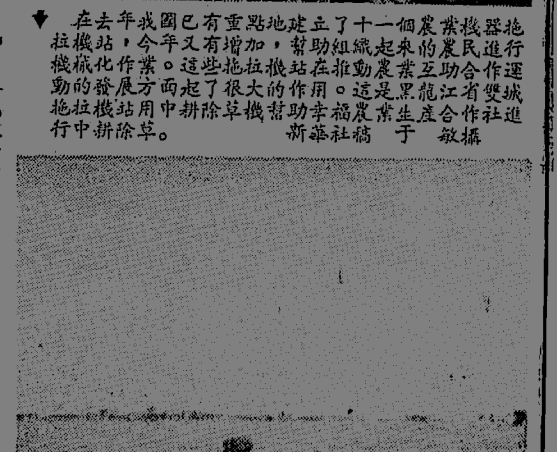 在去年我國已有重點地建立了十一個農業機器拖
拉機站,今年又有增加,幫助組織起來的農民進行
機械化作業。這些拖拉機站在推動農業互助合作運
動的發展方面起了很大的作用。這是黑龍江省雙城
拖拉機站用中耕除草機幫助幸福農業生產合作社進
行中耕除草。 新華社稿 于敏攝